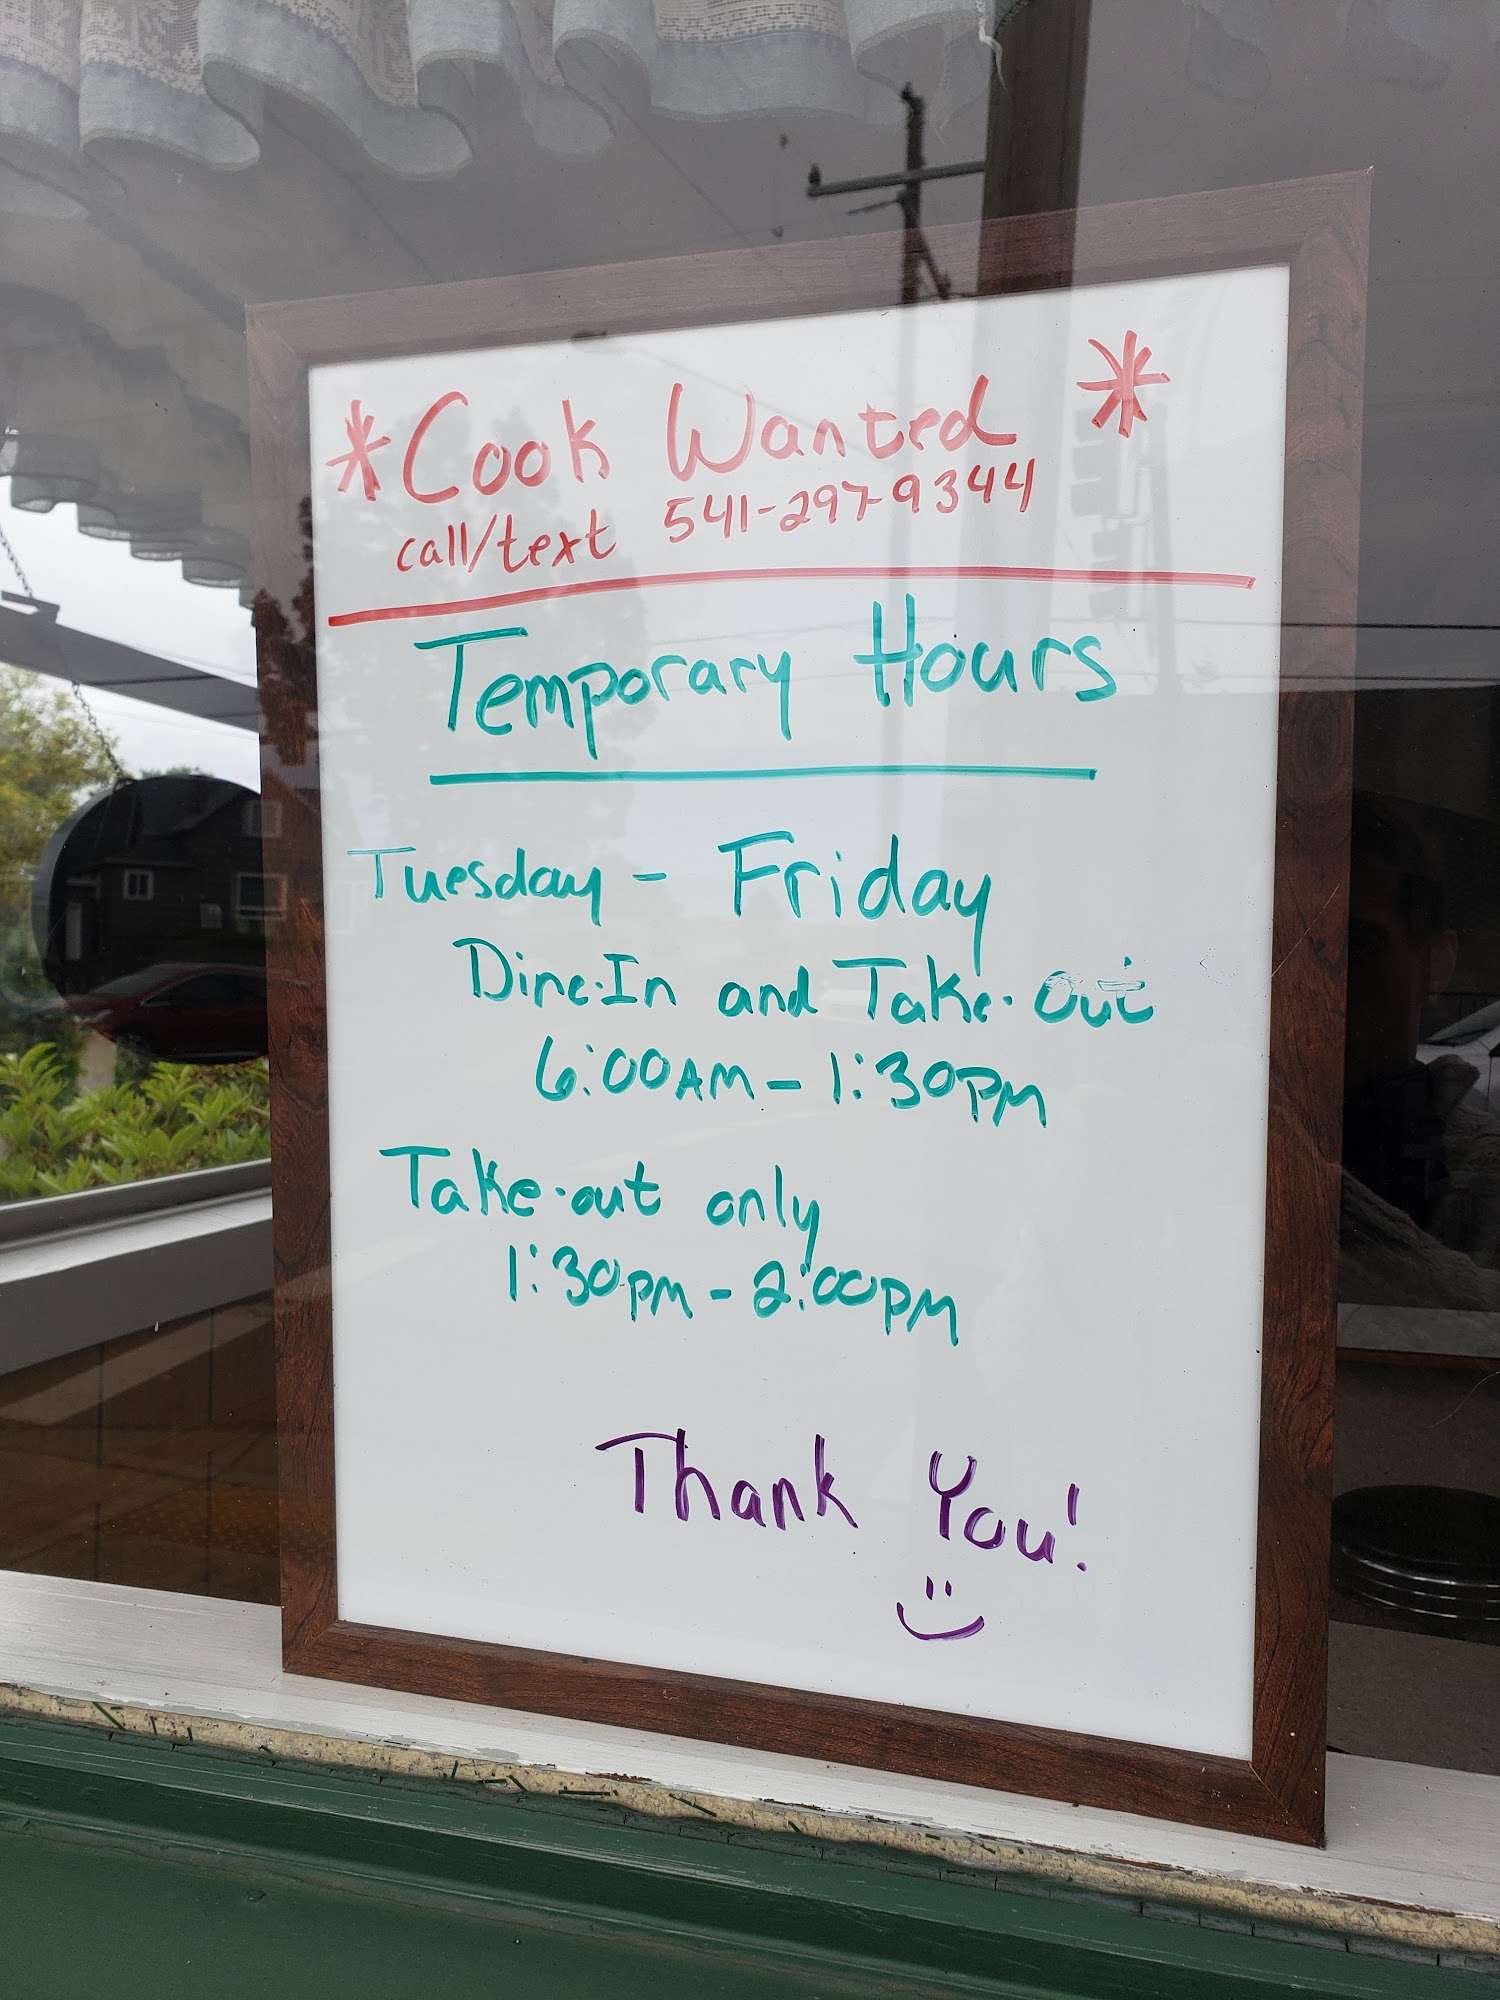 *Cook Wanted *
call/text 541-297-9344
Temporary Hours
Tuesday - Friday
Dine-In and Take-Out
6:00AM - 1:30PM
Take-out only
1:30PM - 2:00PM
Thank You!